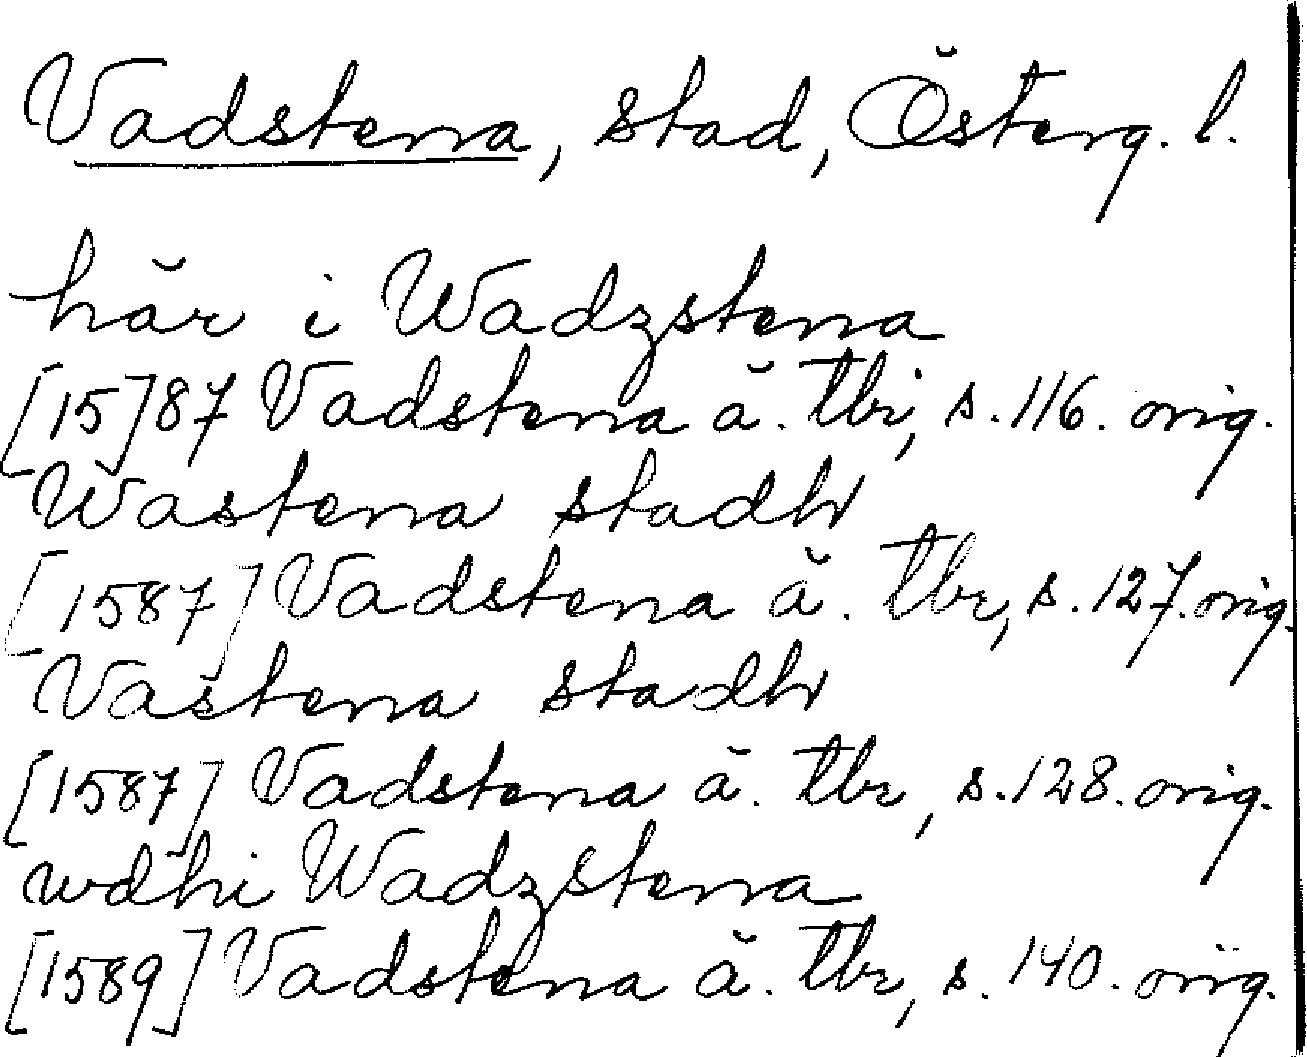 Vadstena, stad, Österg. l.
här i Wadzstena
[15]87 Vadstena ä. tbr, s. 116. orig.
Wastena stadh
[1587] Vadstena ä. tbr, s. 127. orig.
Vastena stadh
[1587] Vadstena ä. tbr, s. 128. orig.
wdhi Wadzstena
[1589] Vadstena ä. tbr, s. 140. orig.